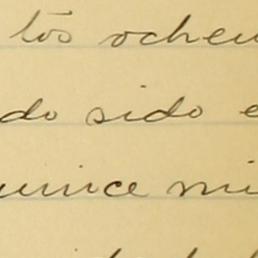 tos ochen
do sido e
unice mi